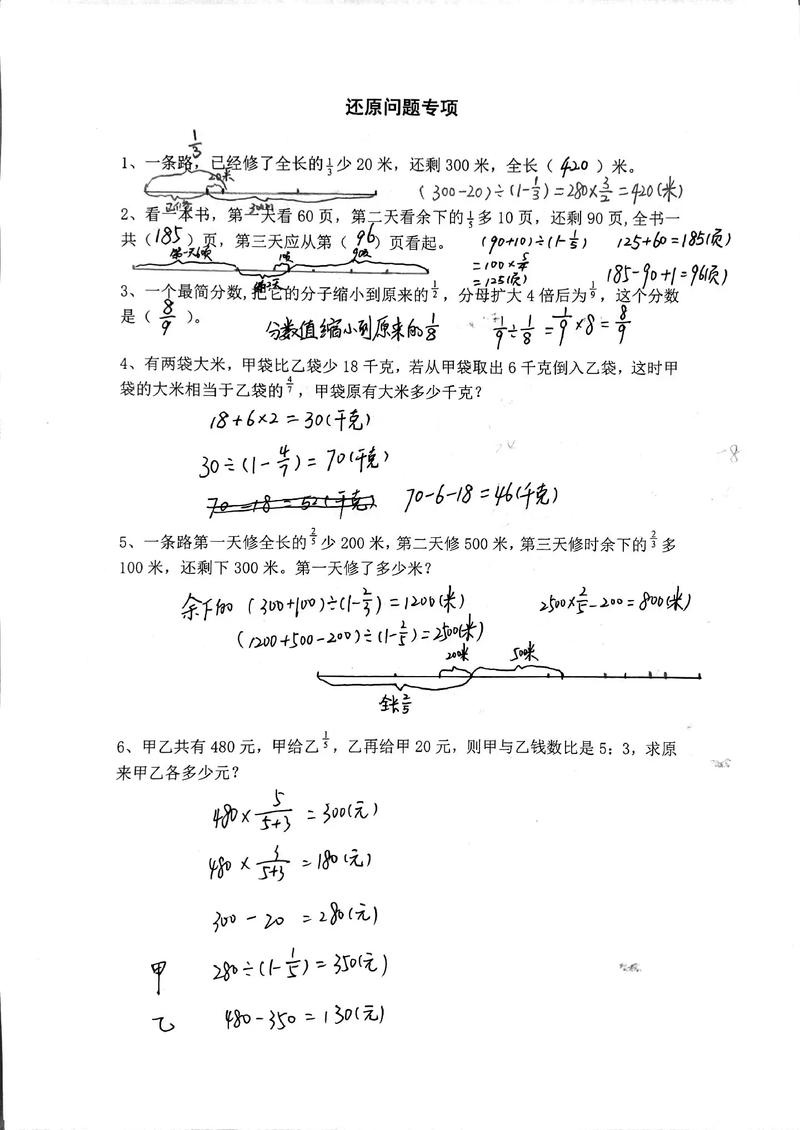 还原问题专项
1/3
1、一条路,已经修了全长的1/3少 20 米,还剩 300 米,全长( 420 )米。
20米
已修 300米
(300-20)÷(1-1/3)=280×3/2=420(米)
2、看一本书,第一天看 60 页,第二天看余下的1/5多 10 页,还剩 90 页,全书一
共(185)页,第三天应从第( 96 )页看起。
(90+10)÷(1-1/5) 125+60=185(页)
=100×5/4
=125(页) 185-90+1=96(页)
第一天60页 10页 90页
第二天
3、一个最简分数,把它的分子缩小到原来的1/2,分母扩大 4 倍后为1/9,这个分数
是( 8/9 )。
分数值缩小到原来的1/8 1/9÷1/8=1/9×8=8/9
4、有两袋大米,甲袋比乙袋少 18 千克,若从甲袋取出 6 千克倒入乙袋,这时甲
袋的大米相当于乙袋的4/7,甲袋原有大米多少千克?
18+6×2=30(千克)
30÷(1-4/7)=70(千克)
70-18=52(千克) 70-6-18=46(千克)
5、一条路第一天修全长的2/5少 200 米,第二天修 500 米,第三天修时余下的2/3多
100 米,还剩下 300 米。第一天修了多少米?
余下的 (300+100)÷(1-2/3)=1200(米) 2500×2/5-200=800(米)
(1200+500-200)÷(1-2/5)=2500(米)
200米 500米
全长2/5
6、甲乙共有 480 元,甲给乙1/5,乙再给甲 20 元,则甲与乙钱数比是 5:3,求原
来甲乙各多少元?
480×5/(5+3)=300(元)
480×3/(5+3)=180(元)
300-20=280(元)
甲 280÷(1-1/5)=350(元)
乙 480-350=130(元)